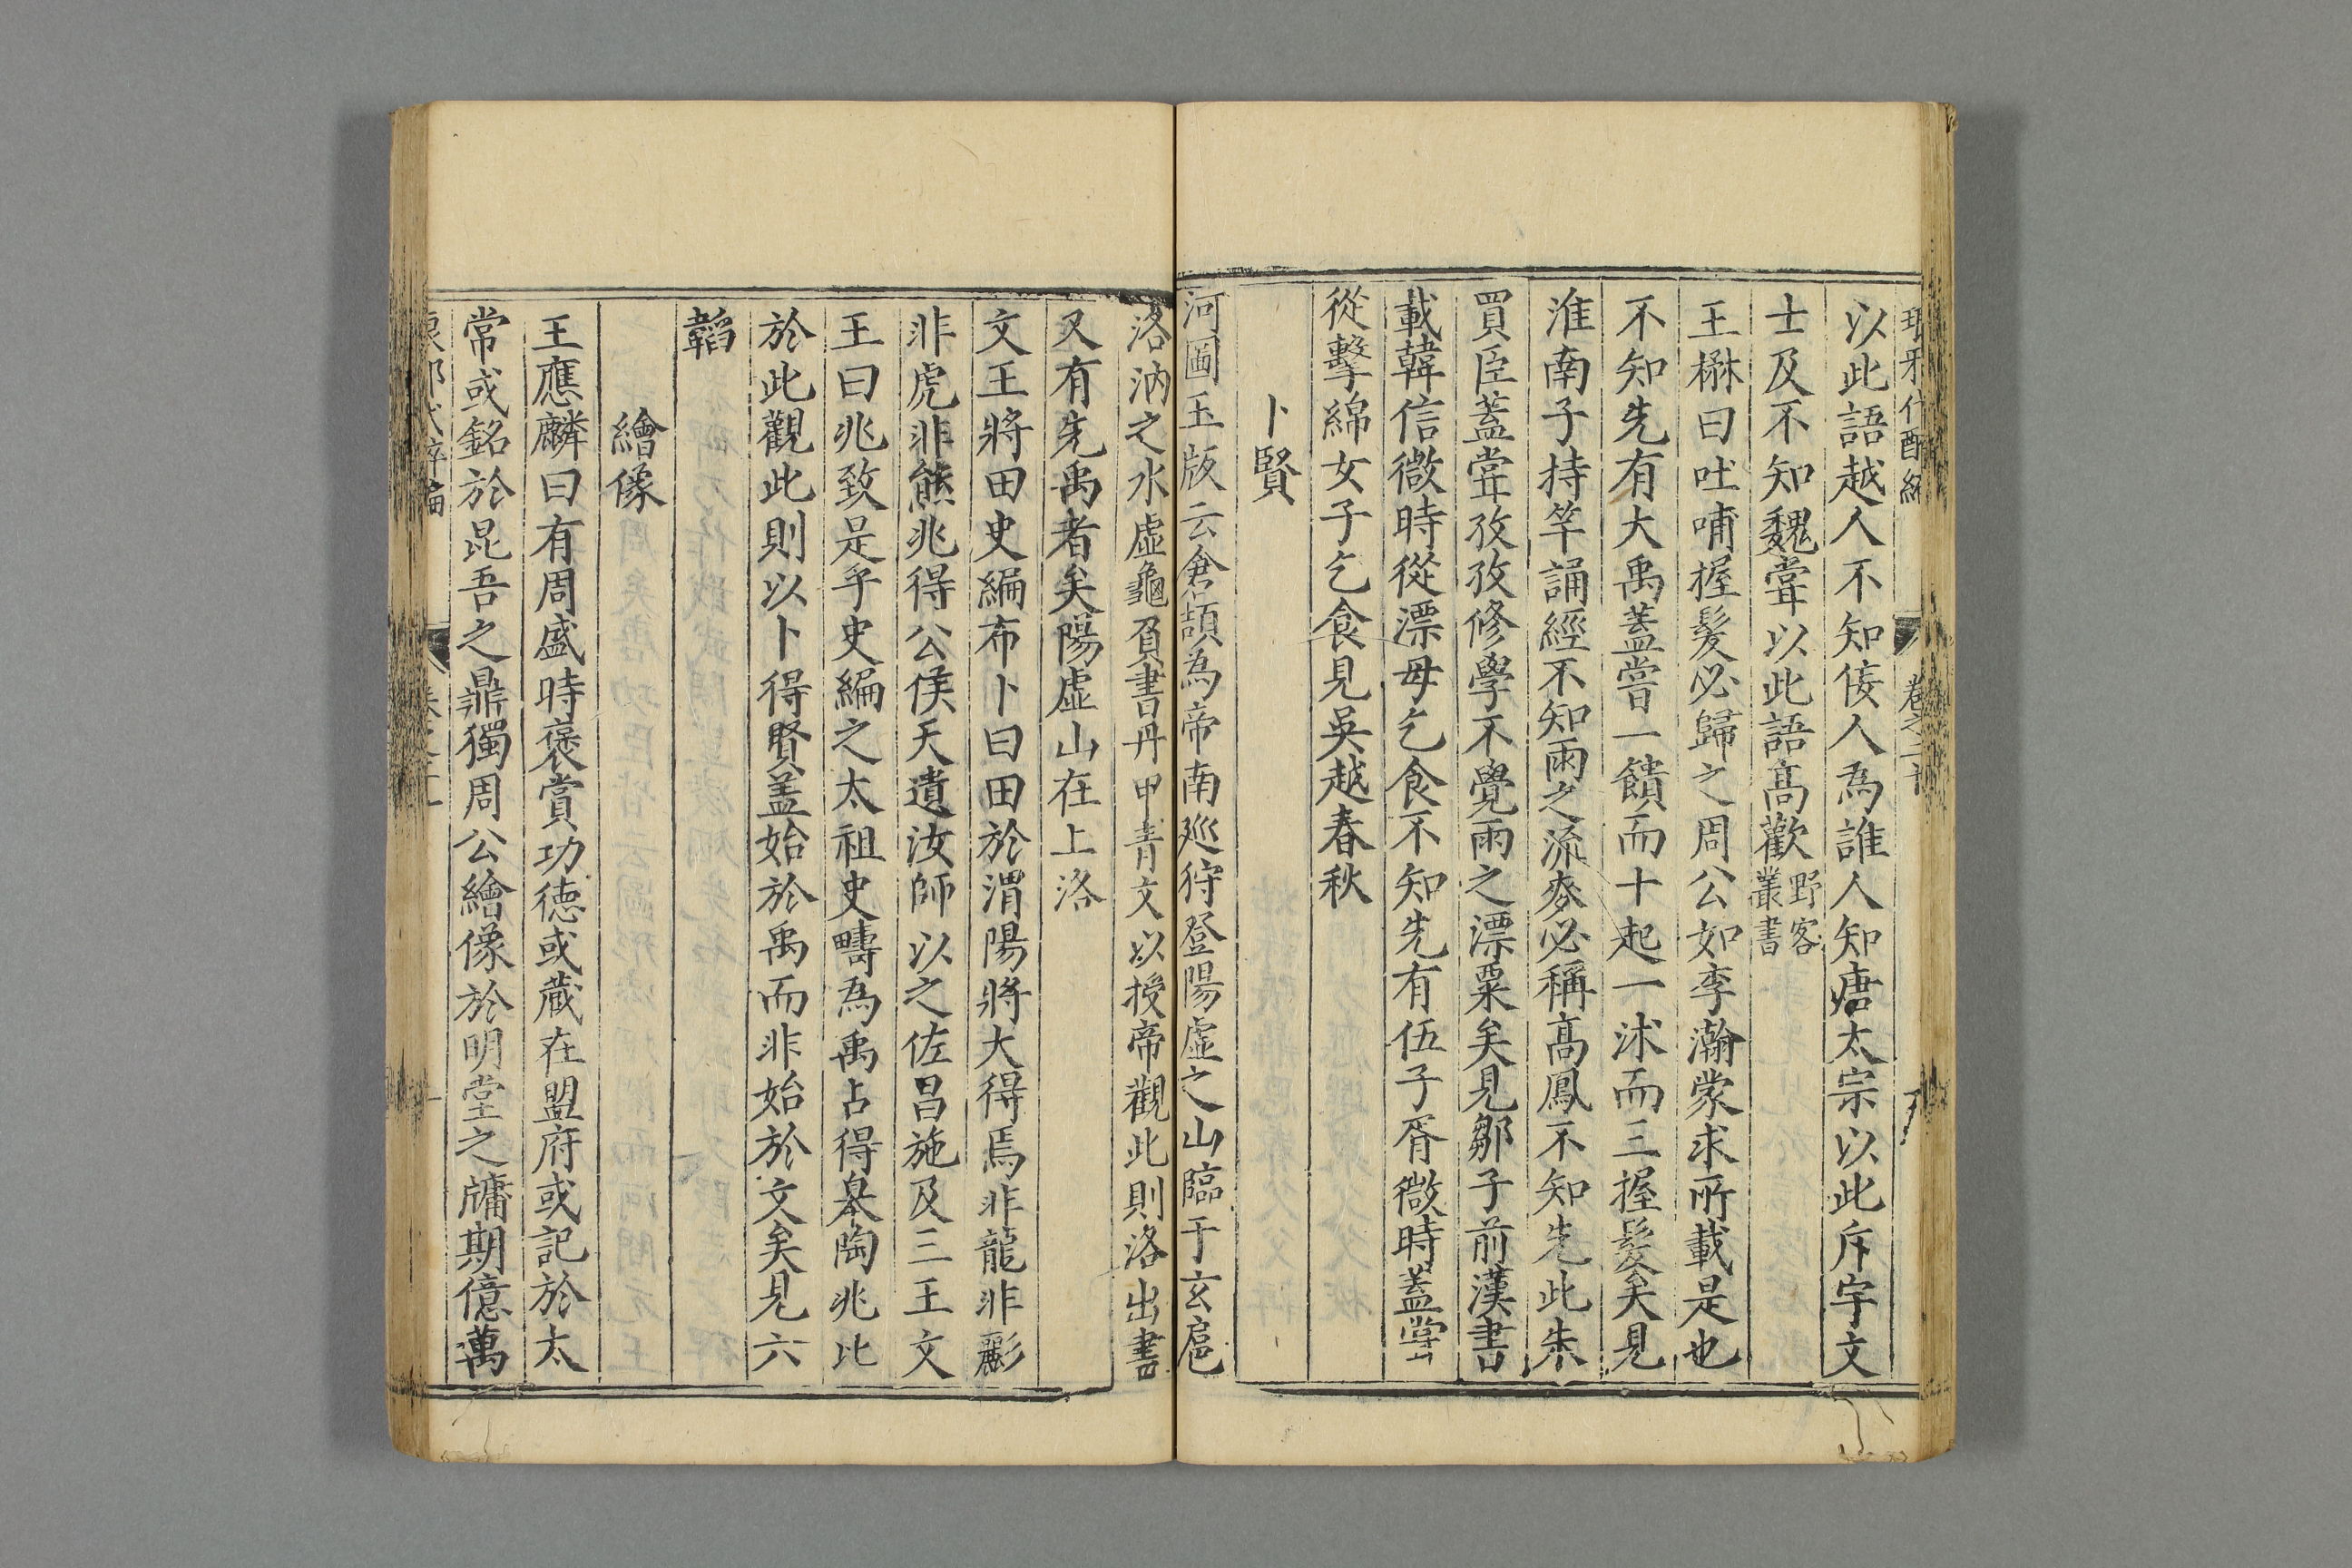 卷之二十
以此語越人不知佞人為誰人知唐太宗以此斥宇文
士及不知魏甞以此語高歡野客叢書
王楙曰吐哺握髮必歸之周公如李瀚蒙求所載是也
不知先有大禹蓋嘗一饋而十起一沭而三握髮矣見
淮南子持竿誦經不知雨之流麥必稱高鳳不知先此朱
買臣蓋甞孜孜修學不覺雨之漂粟矣見鄒子前漢書
載韓信微時從漂母乞食不知先有伍子胥微時蓋甞
從擊綿女子乞食見吳越春秋
卜賢
河圖玉版云倉頡為帝南廵狩登陽虛之山臨于玄扈
洛汭之水虛龜負書丹甲青文以授帝觀此則洛出書
又有先禹者矣陽虛山在上洛
文王將田史編布卜曰田於渭陽將大得焉非龍非彲
非虎非熊兆得公侯天遺汝師以之佐昌施及三王文
王曰兆致是乎史編之太祖史疇為禹占得皋陶兆比
於此觀此則以卜得賢盖始於禹而非始於文矣見六
韜
繪像
王應麟曰有周盛時褒賞功德或藏在盟府或記於太
常或銘於昆吾之鼎獨周公繪像於明堂之牗期億萬